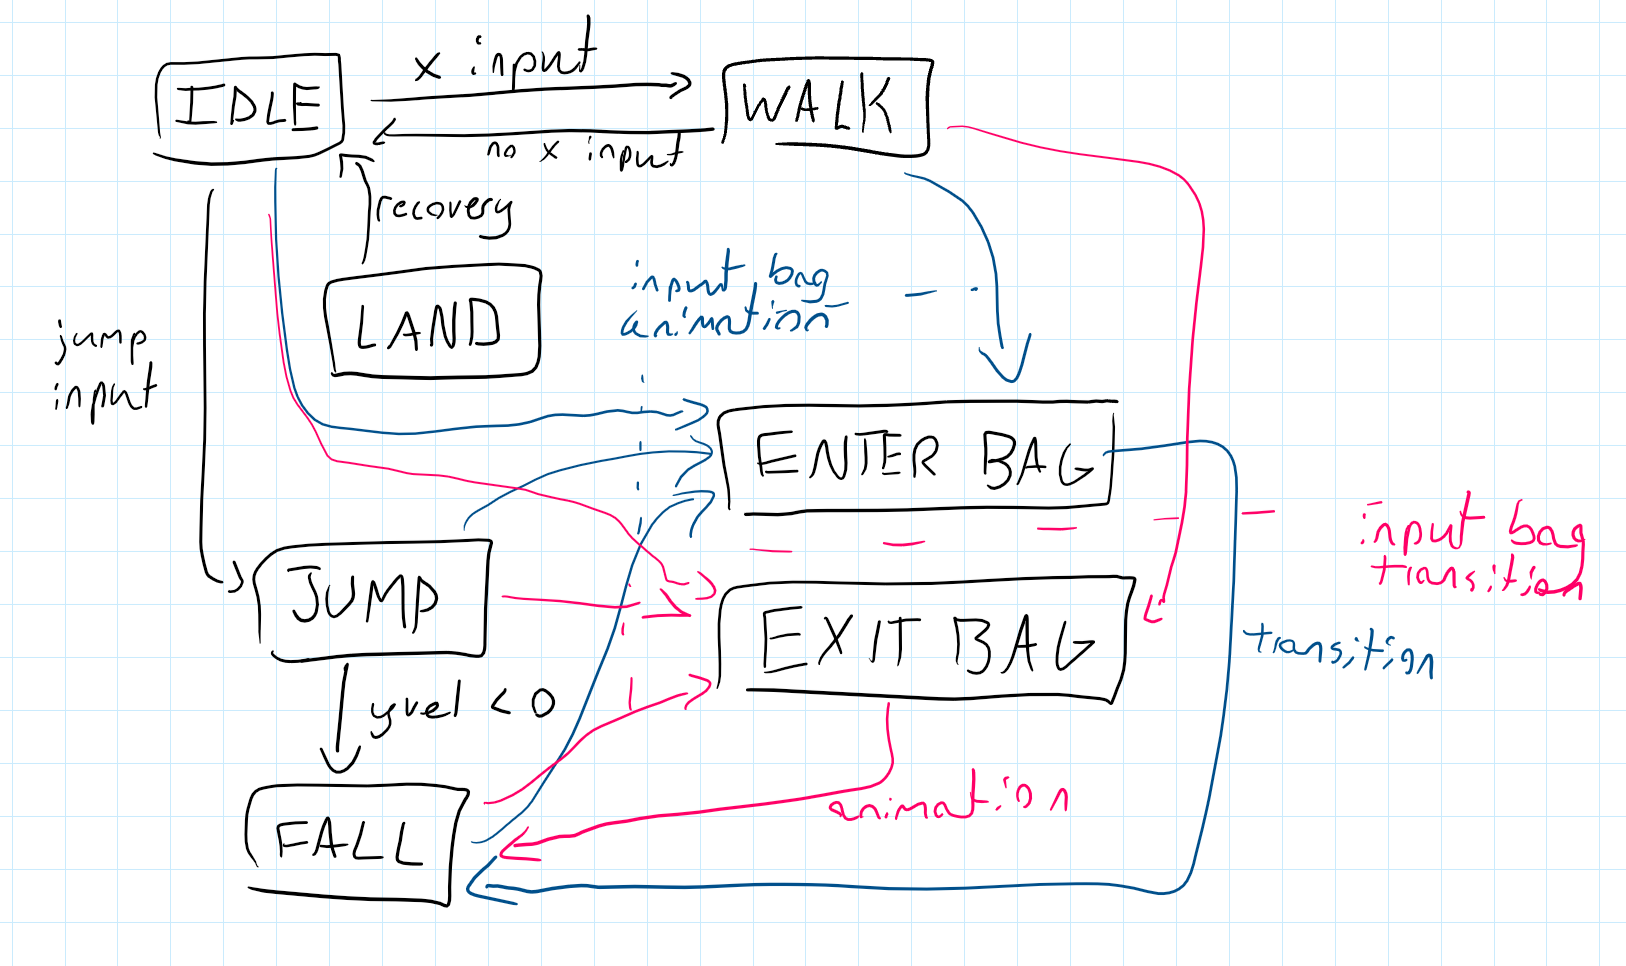 IDLE
x input
WALK
no x input
recovery
LAND
jump
input
input, bag
animation
ENTER BAG
input bag
transition
JUMP
EXIT BAG
transition
yvel < 0
animation
FALL